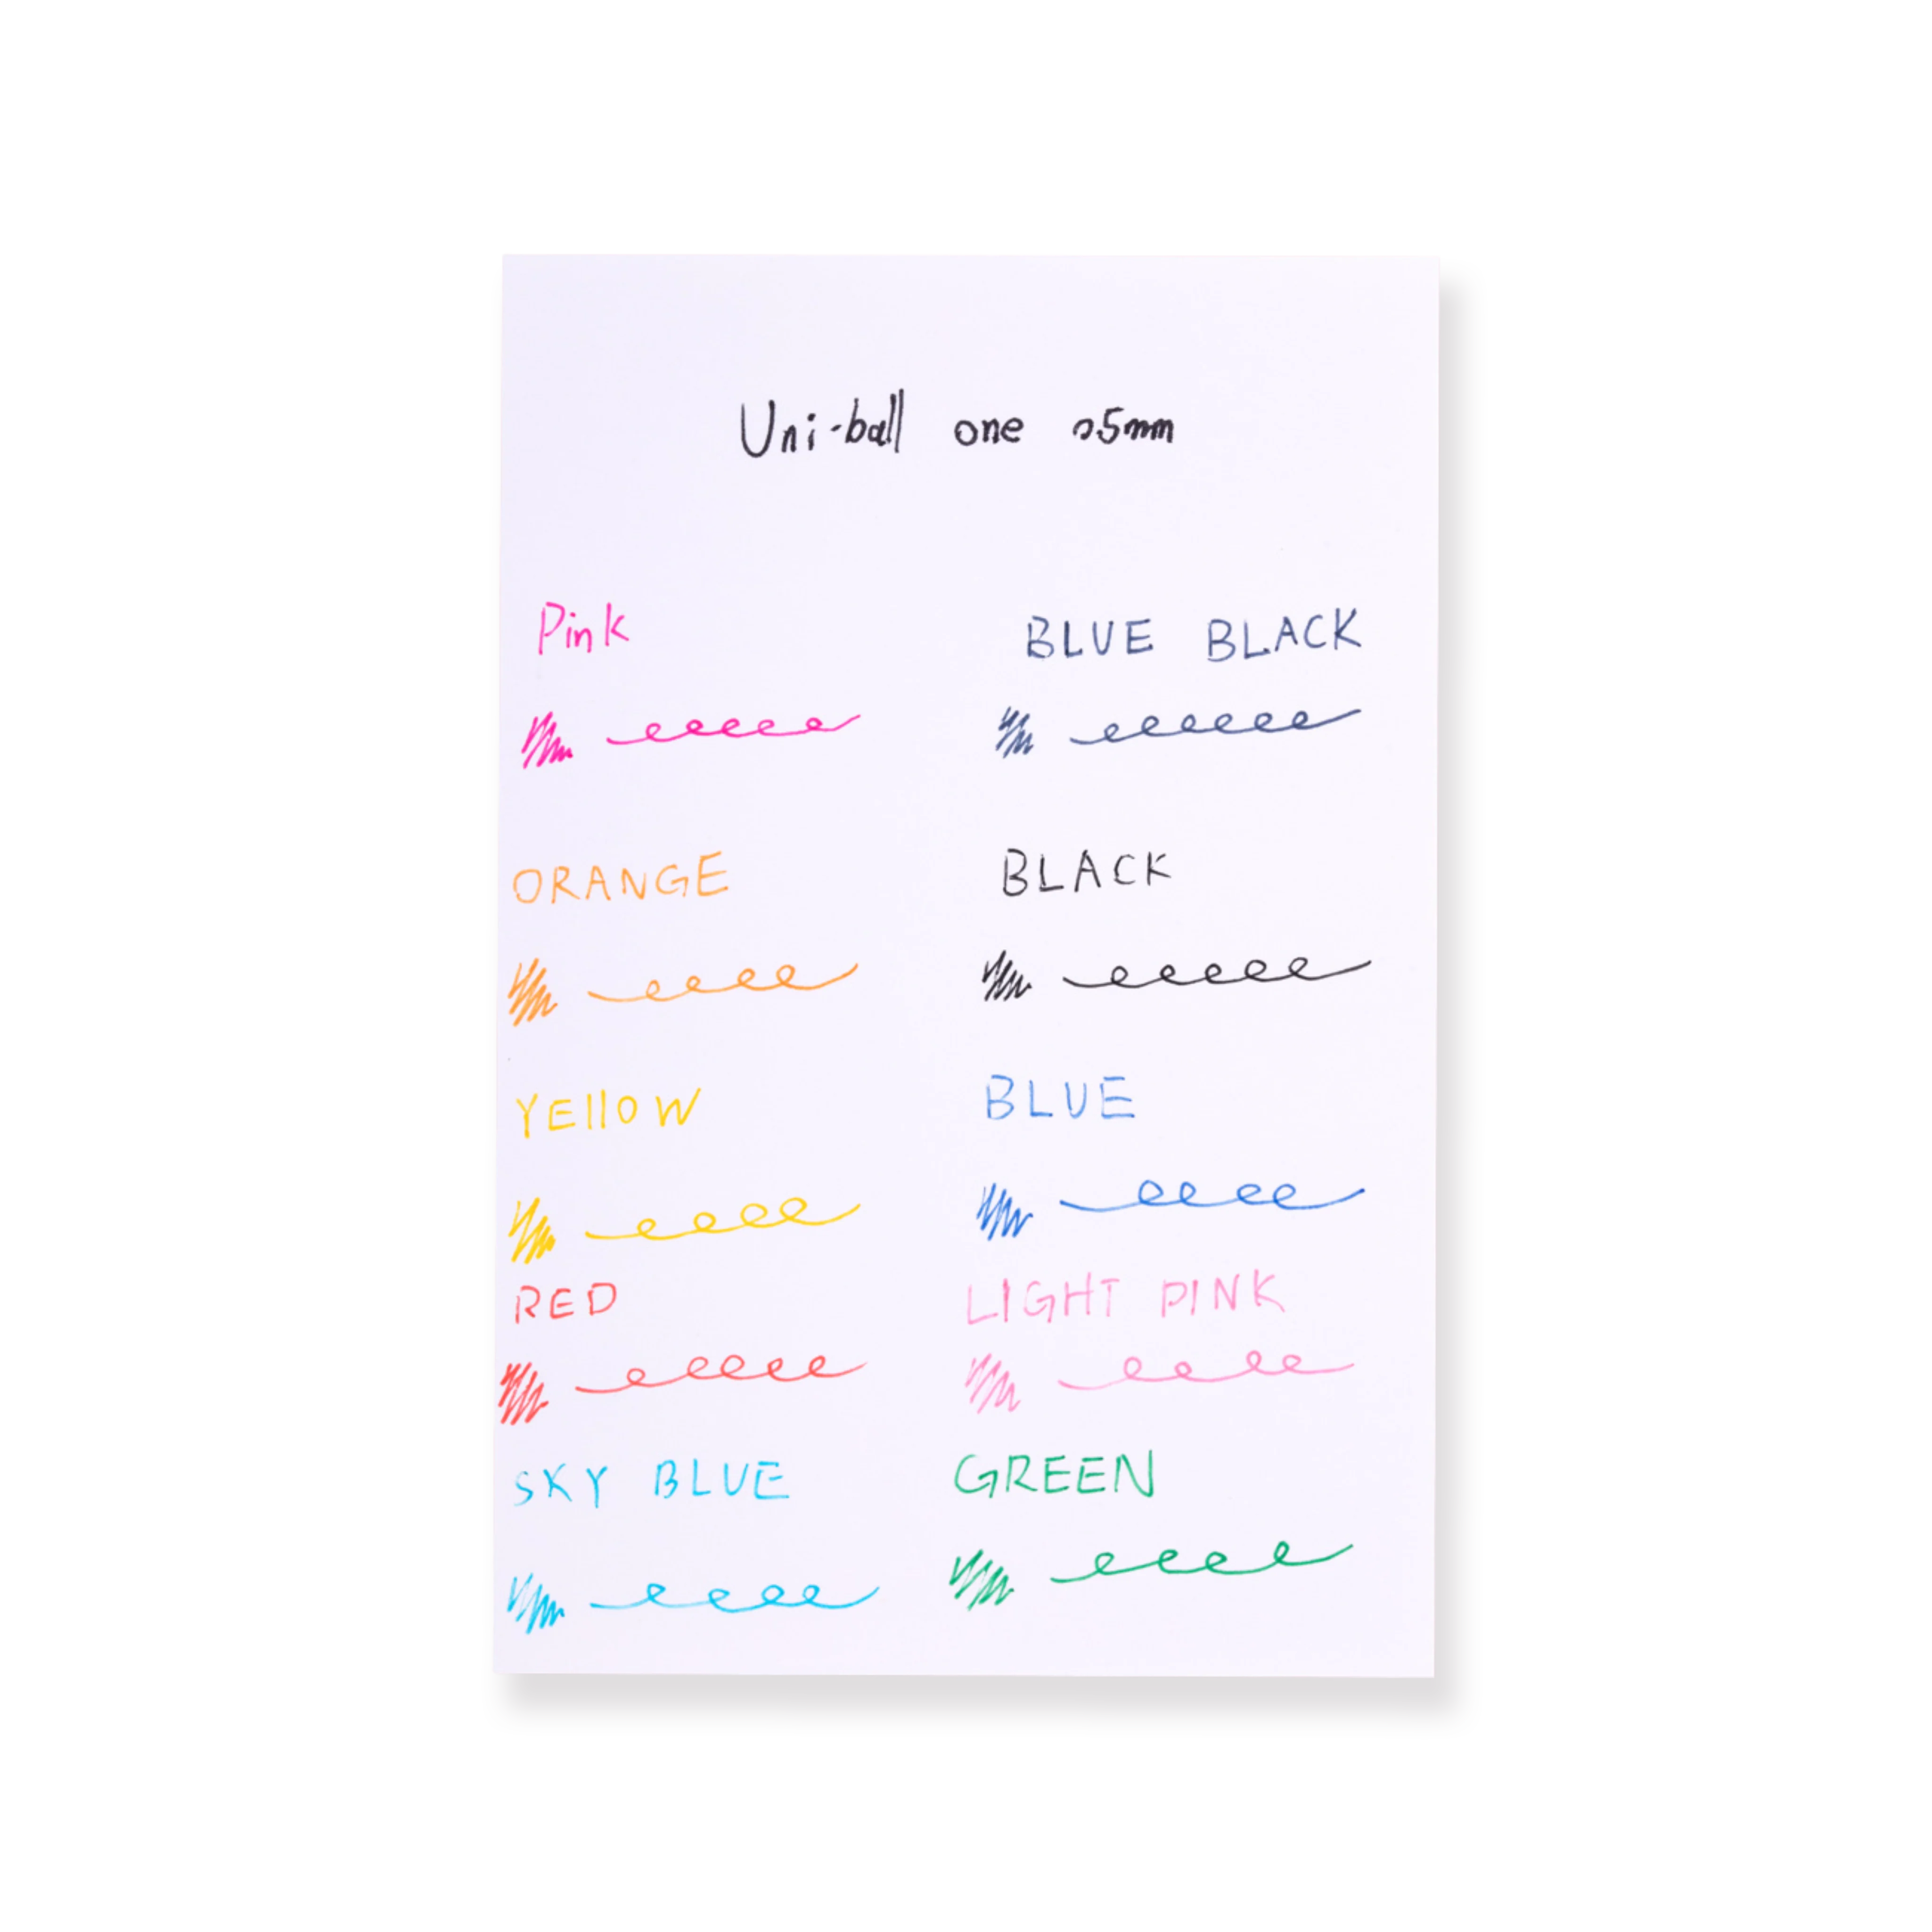 Uni-ball one 0.5mm
Pink
BLUE BLACK
ORANGE
BLACK
YEllOW
BLUE
RED
LIGHT PINK
SKY BLUE
GREEN